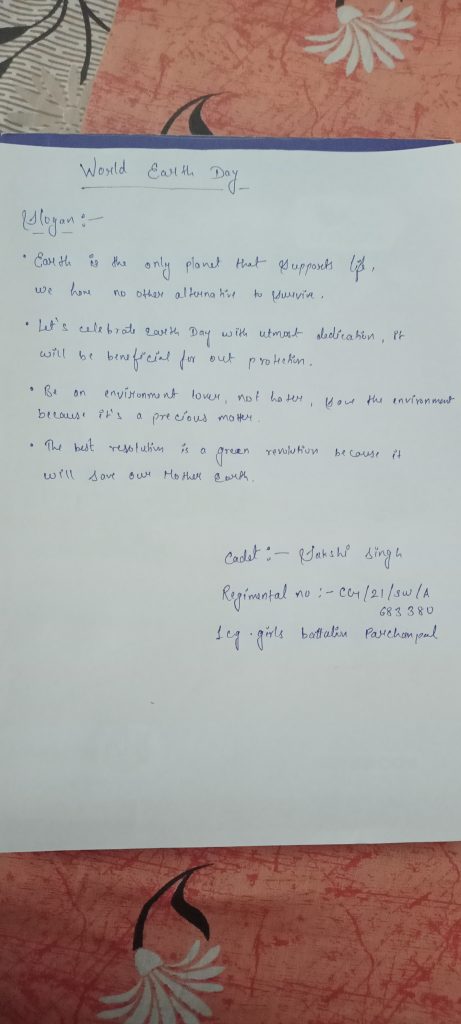 World Earth Day
Slogan :-
• Earth is the only planet that supports life,
we have no other alternative to survive.
• Let's celebrate earth Day with utmost dedication, it
will be beneficial for out protection.
• Be an environment lover, not hater, save the environment
because it's a precious matter.
• The best resolution is a green revolution because it
will save our Mother Earth.
Cadet :- Sakshi Singh
Regimental no :- CG/21/SW/A
683380
1 cg . girls battalion